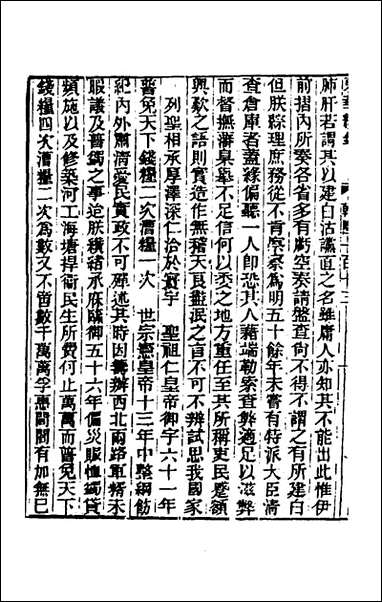 肺肝若謂其以建白沽讜直之名雖庸人亦知其不能出此惟伊
前摺內所奏各省多有虧空奏請盤查尙不得不謂之有所建白
但朕綜理庶務從不肯察察爲明五十餘年未嘗有特派大臣淸
查倉庫者蓋緣偏聽一人卽恐其人藉端勒索查弊適足以滋弊
而督撫藩臬舉不足信何以委之地方重任至其所稱吏民蹙額
興歎之語則實造作無稽天良盡泯之言不可不辨試思我國家
列聖相承厚澤深仁洽於寰宇　聖祖仁皇帝御宇六十一年
普免天下錢糧二次漕糧一次　世宗憲皇帝十三年中整綱飭
紀內外肅淸愛民實政不可殫述其時因籌辦西北兩路軍糈未
暇議及普蠲之事迨朕纘緒承庥臨御五十六年偏災賑恤蠲貸
頻施以及修築河工海塘捍衞民生所費何止萬萬而普免天下
錢糧四次漕糧二次爲數又不啻數千萬萬孚惠閭閻有加無已